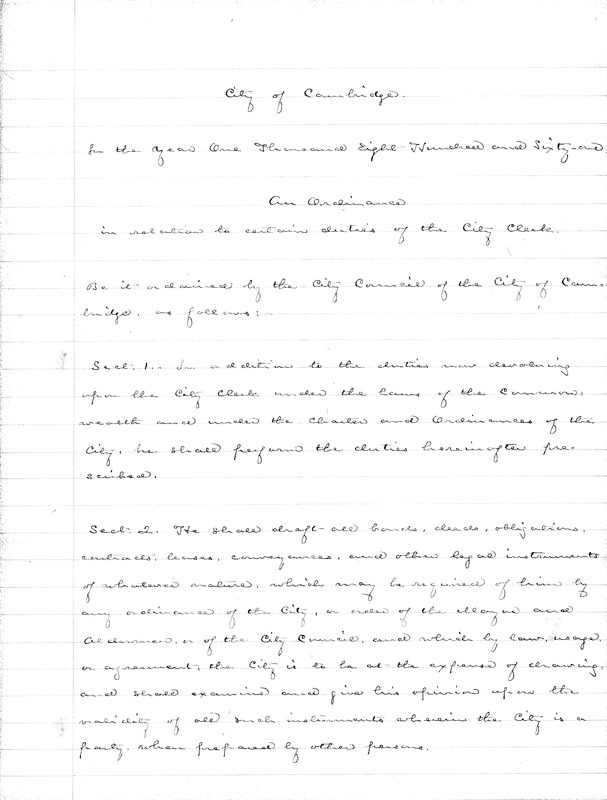 City of Cambridge.
In the Year One Thousand Eight Hundred and Sixty-one
An Ordinance
in relation to certain duties of the City Clerk.
Be it ordained by the City Council of the City of Cam-
bridge, as follows:
Sect. 1. In addition to the duties now devolving
upon the City Clerk under the laws of the Common-
wealth and under the Charter and Ordinances of the
City, he shall perform the duties hereinafter pre-
scribed.
Sect. 2. He shall draft all bonds, deeds, obligations,
contracts, leases, conveyances, and other legal instruments
of whatever nature, which may be required of him by
any ordinance of the City, or order of the Mayor and
Aldermen, or of the City Council, and which by law, usage,
or agreement, the City is to be at the expense of drawing,
and shall examine and give his opinion upon the
validity of all such instruments wherein the City is a
party, when prepared by other persons.